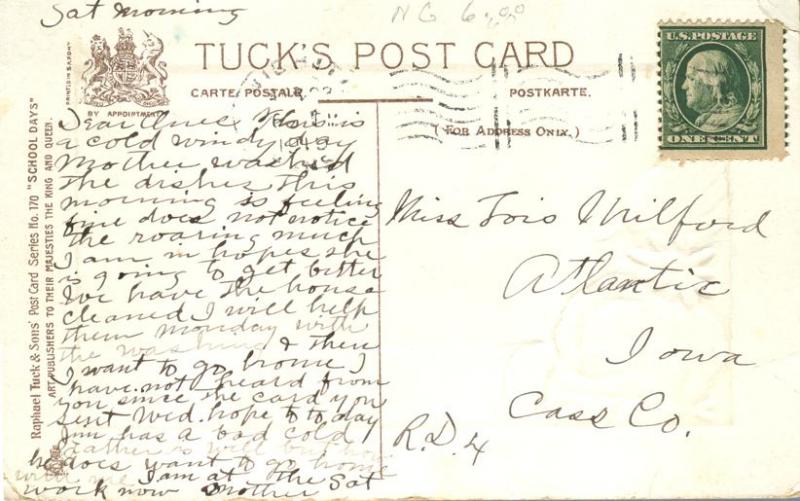 Sat Morning
NG 6.00
TUCK'S POST CARD
CARTE POSTALE
POSTKARTE.
(FOR ADDRESS ONLY.)
BY APPOINTMENT
PRINTED IN SAXONY
Raphael Tuck & Sons' Post Card Series No. 170 "SCHOOL DAYS"
ART PUBLISHERS TO THEIR MAJESTIES THE KING AND QUEEN.
U.S. POSTAGE
ONE CENT
Dear Ones This is
a cold windy day
Mother washed
the dishes this
morning is feeling
fine does not notice
the roaring much
I am in hopes she
is going to get better
We have the house
cleaned I will help
them Monday with
the washing & then
I want to go home I
have not heard from
you since the card you
sent Wed. hope to to day
Jim has a bad cold
Father is well but
he does want to go home
with me I am at the Sat
work now Mother
Miss Lois Milford
Atlantic
Iowa
Cass Co.
R.D. 4